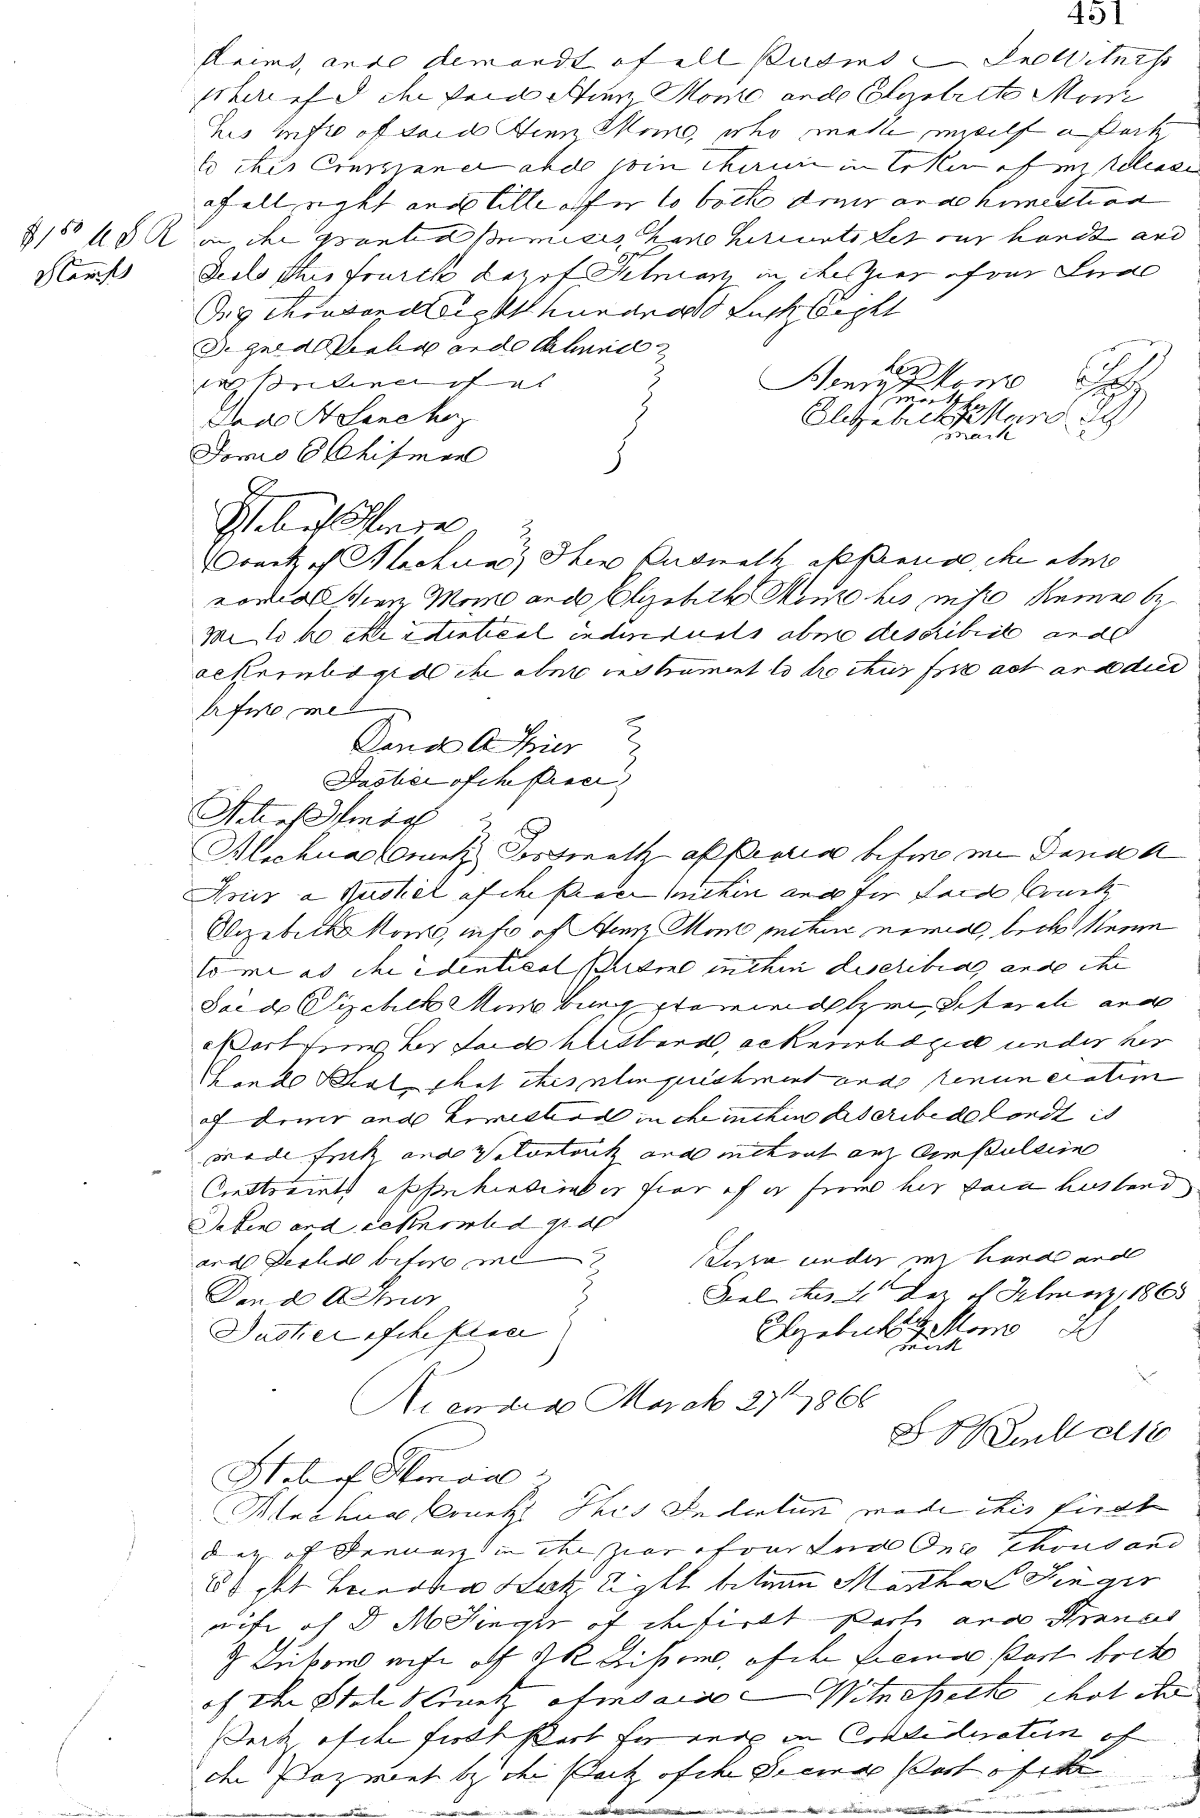 451
claims, and demands of all Persons — In Witness
whereof I the said Henry Moore and Elizabeth Moore
his wife of said Henry Moore, who make myself a Party
to this Conveyance and join therein in token of my release
of all right and title of or to both dower and homestead
$1 50 U S R
Stamps
in the granted premises, have hereunto set our hands and
Seals this fourth day of February in the year of our Lord
One thousand Eight hundred Sixty Eight
Signed Sealed and delivered
in presence of us
H Sanchez
Chipman
Henry his mark Moore
Elizabeth her mark Moore
State of Florida
County of Alachua } Then Personally appeared the above
named Henry Moore and Elizabeth Moore his wife Known by
me to be the identical individuals above described and
acknowledged the above instrument to be their free act and deed
before me
David A
Justice of the Peace
State of Florida
Alachua County } Personally appeared before me David A
a Justice of the Peace within and for Said County
Elizabeth Moore, wife of Henry Moore within named, both Known
to me as the identical Persons within described, and the
Said Elizabeth Moore being examined by me, Separate and
apart from her said husband, acknowledged under her
hand & Seal, that this relinquishment and renunciation
of dower and homestead in the within described lands is
made freely and Voluntarily and without any Compulsion
Constraint, apprehension or fear of or from her said husband
Taken and acknowledged
and Sealed before me
David A
Justice of the Peace
Given under my hand and
Seal this 4th Day of February, 1868
Elizabeth her mark Moore
Recorded March 27th 1868
State of Florida
Alachua County } This Indenture made this first
day of January in the year of our Lord One Thousand
Eight hundred Sixty Eight between Martha L Singer
wife of D M Singer of the first Part and Frances
wife of J R of the Second Part both
of the State & County aforesaid — Witnesseth that the
Party of the first Part for and in Consideration of
the Payment by the Party of the Second Part of the